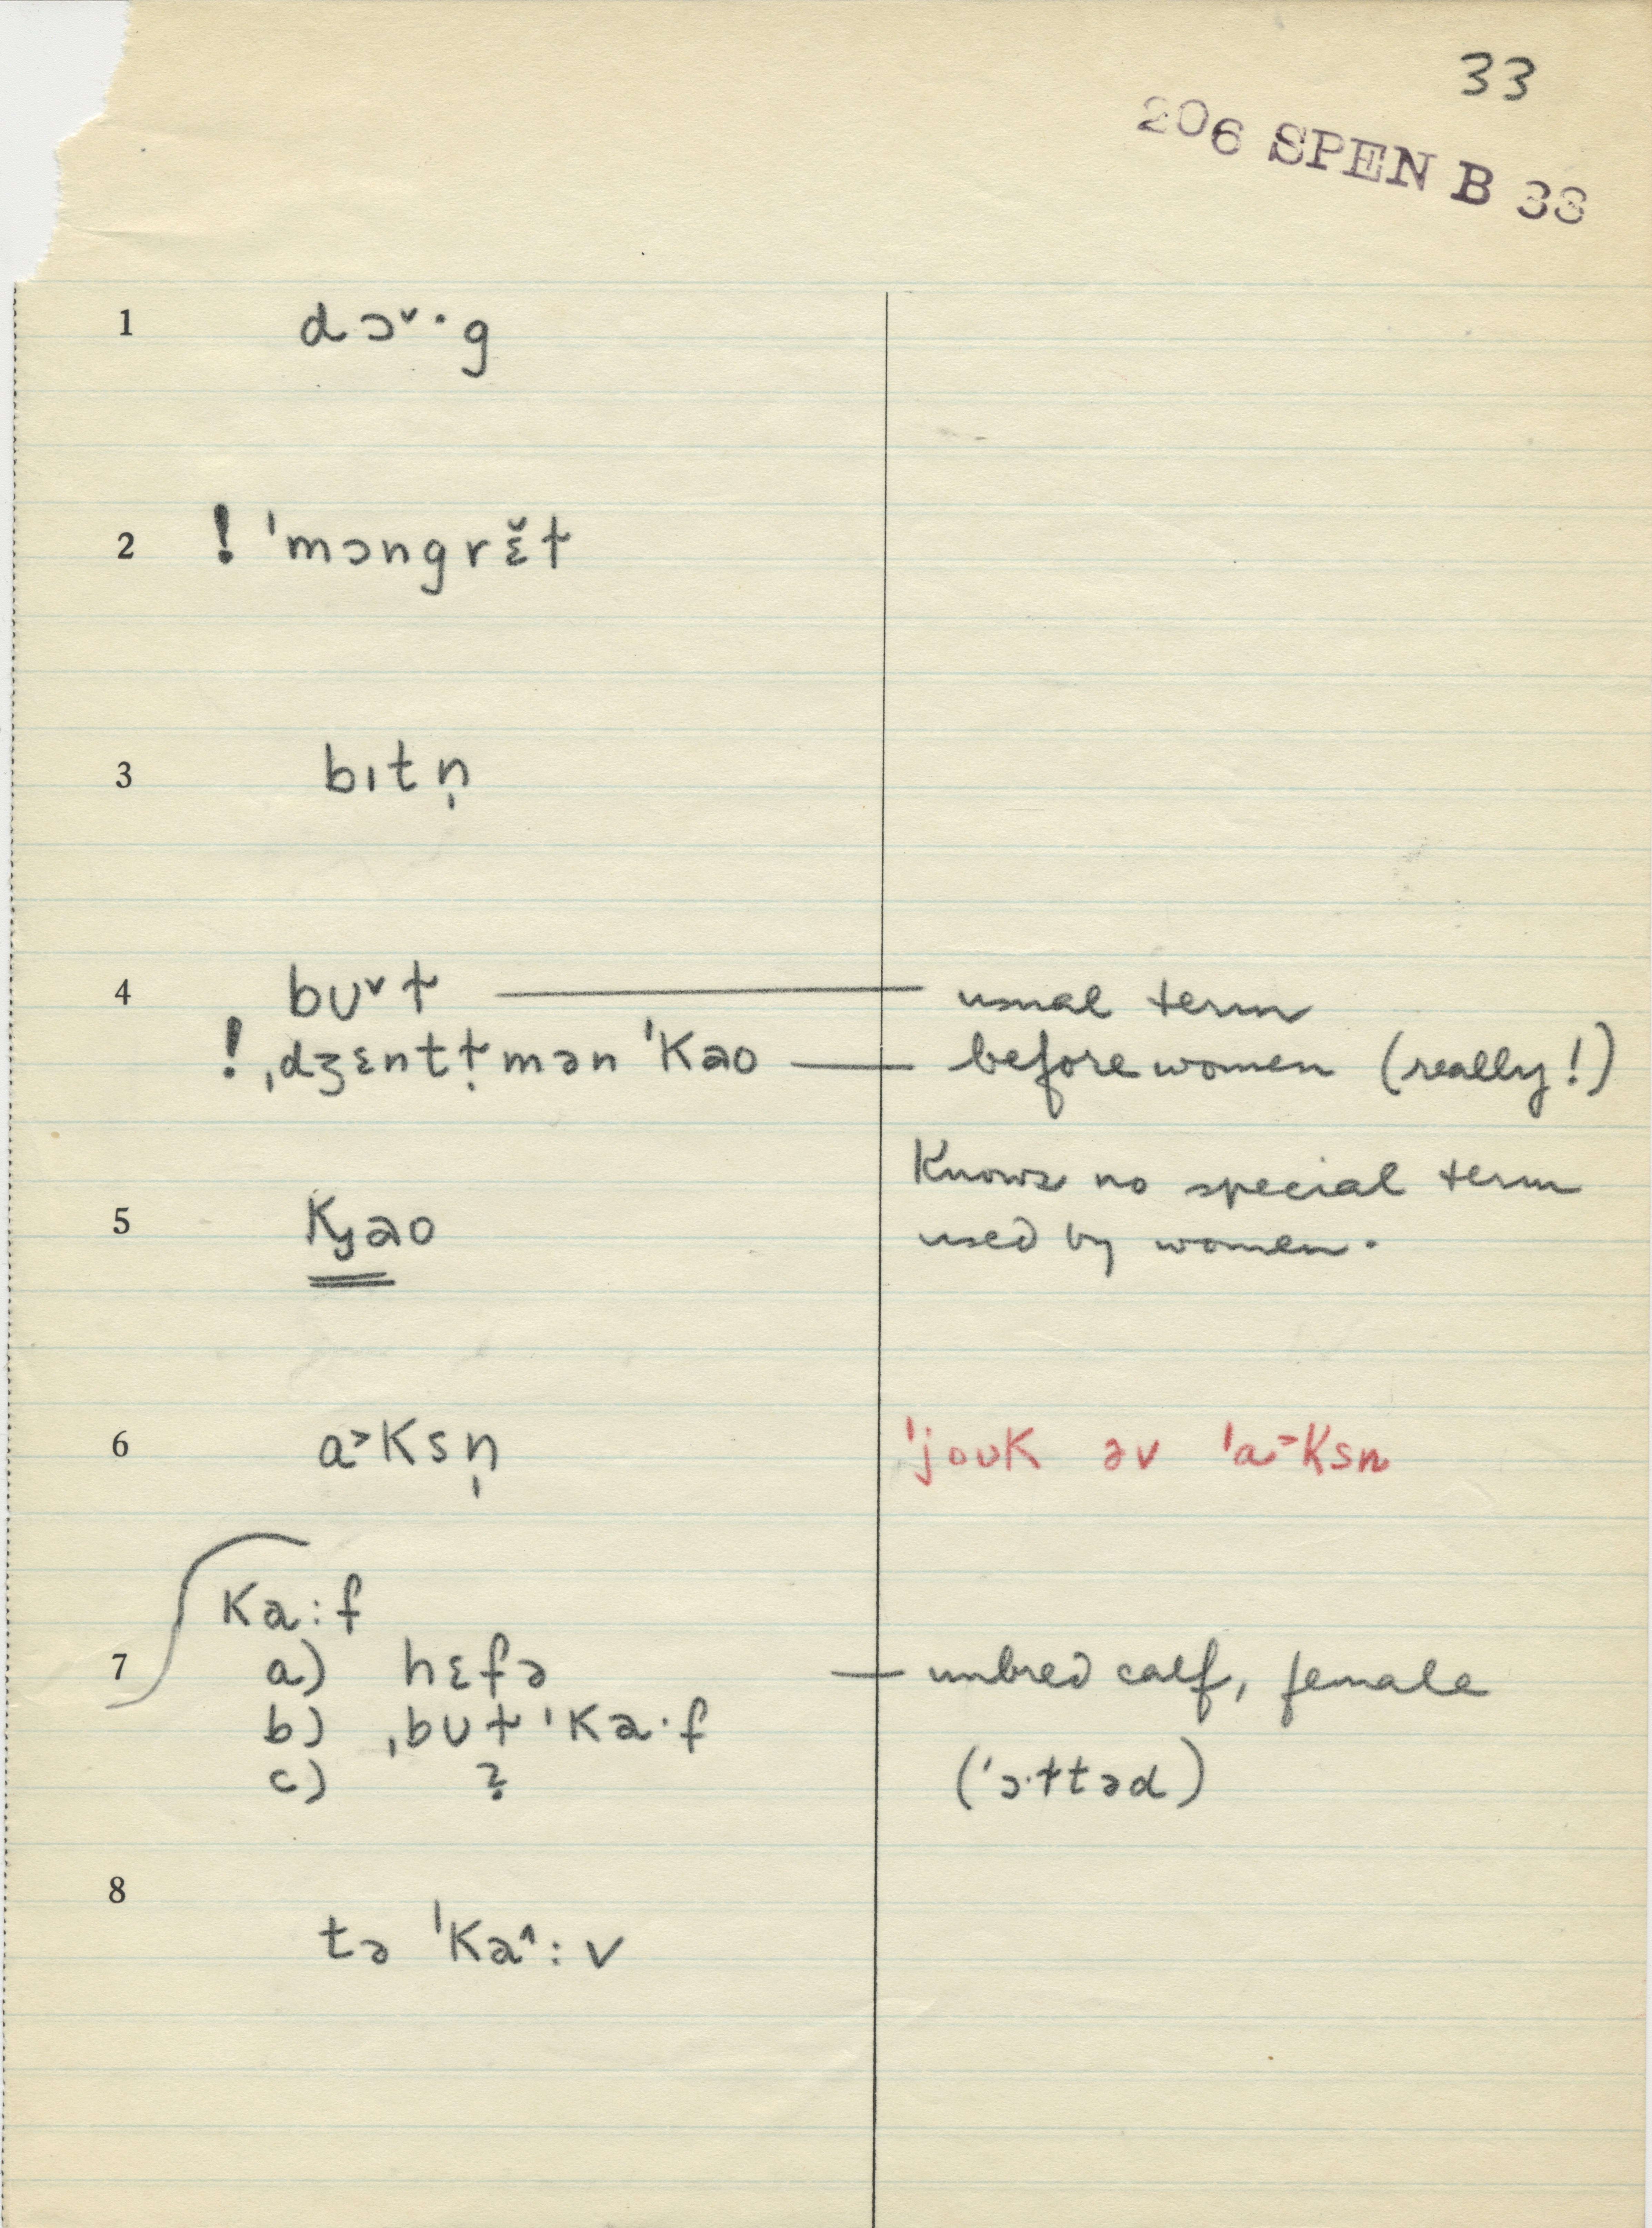 33
206 SPEN B 33
1 dɔ˅·g
2 ! ˈmɔngrɛ̆ɫ
3 bɪtn̩
4 bʊ˅ɫ — usual term
! ˌdʒɛntɫ̩mən ˈkəo — before women (really!)
Knows no special term
5 kɟəo used by women.
6 a˃ksn̩ ˈjoʊk əv ˈa˃ksn
ka:f
7 a) hɛfə — unbred calf, female
b) ˌbʊɫ ˈka·f
c) ? (ˈɔ·ɫtəd)
8
tə ˈka˄:v